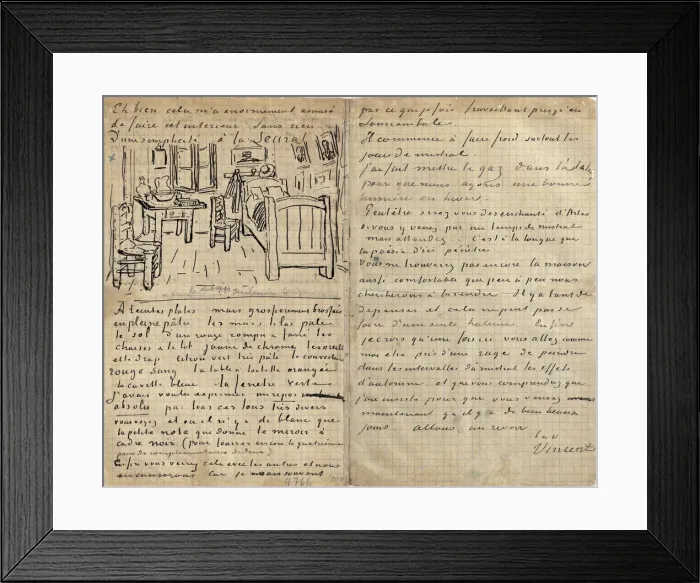 Eh bien cela m'a enormement amusé
de faire cet interieur sans rien.
D'une simplicité à la Seurat
à teintes plates mais grossierement brossées
en pleine pâte les murs lilas pale
le sol d'un rouge rompu & fané les
chaises & le lit jaune de chrome les oreillers
et le drap citron vert très pâle la couverture
rouge sang la table à toilette orangée
la cuvette bleue la fenetre verte
j'avais voulu exprimer un repos
absolu par tous ces tons très divers
vous voyez et où il n'y a de blanc que
la petite note que donne le miroir à
cadre noir (pour fourrer encore la quatrième
paire de complementaires dedans)
Enfin vous verrez cela avec les autres et nous
en causerons car je ne sais souvent
pas ce que je fais travaillant presqu'en
somnambule.
Il commence à faire froid surtout les
jours de mistral.
j'ai fait mettre le gaz dans l'atelier
pour que nous ayons une bonne
lumière en hiver.
Peutêtre serez vous desenchanté d'Arles
si vous y venez par un temps de mistral
mais attendez.. C'est à la longue que
la poésie d'ici pénètre
Vous ne trouverez pas encore la maison
aussi confortable que peu à peu nous
chercherons à la rendre Il y a tant de
dépenses et cela ne peut pas se
faire d'une seule haleine. Enfin
je crois qu'une fois ici vous allez comme
moi etre pris d'une rage de peindre
dans les intervalles du mistral les effets
d'automne et que vous comprendrez que
j'ai insisté pour que vous venez
maintenant qu'il y a de bien beaux
jours allons au revoir
t. a. v
Vincent